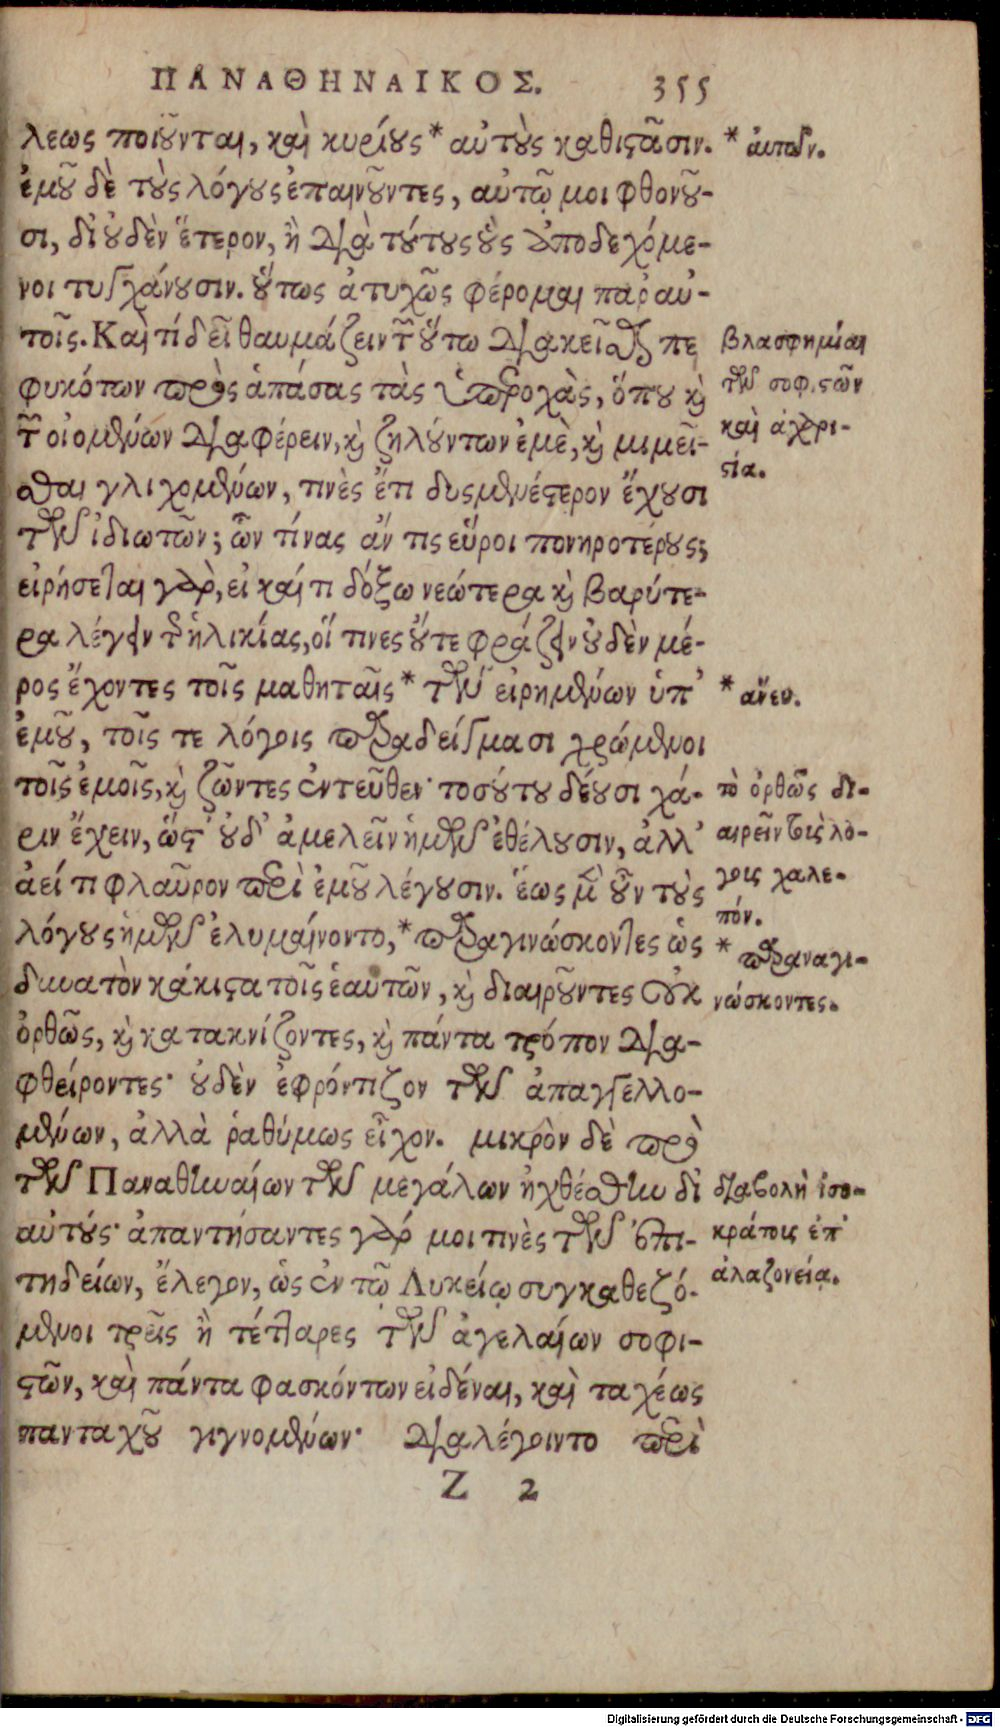 ΠΑΝΑΘΗΝΑΙΚΟΣ. 355
λεως ποιοῦνται, καὶ κυρίους* αὐτοὺς καθιστᾶσιν.
ἐμοῦ δὲ τοὺς λόγους ἐπαινοῦντες, αὐτῷ μοι φθονοῦ-
σι, δι' οὐδὲν ἕτερον, ἢ διὰ τούτους οὓς ἀποδεχόμε-
νοι τυγχάνουσιν. οὕπως ἀτυχῶς φέρομαι παρ' αὐ-
τοῖς. Καὶ τί δεῖ θαυμάζειν τῶν οὕτω διακεῖσθαι πε
φυκότων πρὸς ἁπάσας τὰς ὑπεροχὰς, ὅπου καὶ
τῶν οἰομένων διαφέρειν, καὶ ζηλούντων ἐμὲ, καὶ μιμεῖ-
σθαι γλιχομένων, τινὲς ἔτι δυσμενέστερον ἔχουσι
τῶν ἰδιωτῶν; ὧν τίνας ἄν τις εὕροι πονηροτέρους;
εἰρήσεται γὰρ, εἰ καί τι δόξω νεώτερα καὶ βαρύτε-
ρα λέγειν τῆς ἡλικίας, οἵ τινες οὔτε φράζειν οὐδὲν μέ-
ρος ἔχοντες τοῖς μαθηταῖς* τῶν εἰρημένων ὑπ'
ἐμοῦ, τοῖς τε λόγοις παραδείγμασι χρώμενοι
τοῖς ἐμοῖς, καὶ ζῶντες ἐντεῦθεν· τοσούτου δέουσι χά-
ριν ἔχειν, ὥστ' οὐδ' ἀμελεῖν ἡμῶν ἐθέλουσιν, ἀλλ'
ἀεί τι φλαῦρον περὶ ἐμοῦ λέγουσιν. ἕως μὲν οὖν τοὺς
λόγους ἡμῶν ἐλυμαίνοντο,* παραγινώσκοντες ὡς
δυνατὸν κάκιστα τοῖς ἑαυτῶν, καὶ διαιροῦντες οὐκ
ὀρθῶς, καὶ κατακνίζοντες, καὶ πάντα τρόπον δια-
φθείροντες· οὐδὲν ἐφρόντιζον τῶν ἀπαγγελλο-
μένων, ἀλλὰ ῥαθύμως εἶχον. μικρὸν δὲ πρὸ
τῶν Παναθηναίων τῶν μεγάλων ἠχθέσθην δι'
αὐτούς· ἀπαντήσαντες γάρ μοι τινὲς τῶν ἐπι-
τηδείων, ἔλεγον, ὡς ἐν τῷ Λυκείῳ συγκαθεζό-
μενοι τρεῖς ἢ τέτταρες τῶν ἀγελαίων σοφι-
στῶν, καὶ πάντα φασκόντων εἰδέναι, καὶ ταχέως
πανταχοῦ γιγνομένων· διαλέγοιντο περὶ
Ζ 2
βλασφημίαι
τῶν σοφιστῶν
καὶ ἀχρι-
στία.
* ἄνευ.
τὸ ὀρθῶς δι-
αιρεῖν τοὺς λό-
γους χαλε-
πόν.
* παραναγι-
νώσκοντες.
διαβολὴ ἰσο-
κράτους ἐπ'
ἀλαζονείᾳ.
Digitalisierung gefördert durch die Deutsche Forschungsgemeinschaft - DFG